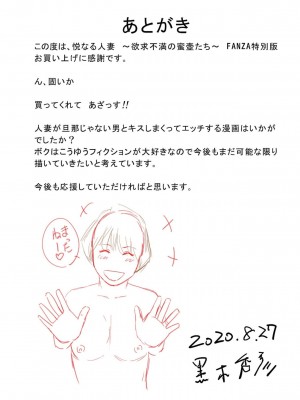 あとがき
この度は、悦なる人妻　～欲求不満の蜜壺たち～　FANZA特別版
お買い上げに感謝です。
ん、固いか
買ってくれて　あざっす!!
人妻が旦那じゃない男とキスしまくってエッチする漫画はいかが
でしたか？
ボクはこうゆうフィクションが大好きなので今後もまだ可能な限り
描いていきたいと考えています。
今後も応援していただければと思います。
まだ
ねー♡
2020.8.27
黒木秀彦